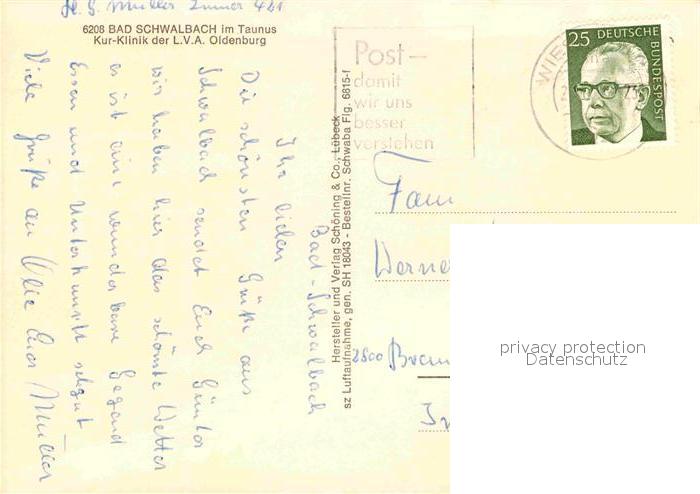 H. G. Müller Zimmer 421
6208 BAD SCHWALBACH im Taunus
Kur-Klinik der L.V.A. Oldenburg
Bad-Schwalbach
Ihr lieben
Die schönsten Grüße aus
Schwalbach sendet Euch Günter
wir haben hier das schönste Wetter
es ist eine wunderbare Gegend
Essen und Unterkunft sehr gut
Viele Grüße an Alle Euer Müller
Hersteller und Verlag Schöning & Co., Lübeck
sz Luftaufnahme, gen. SH 18043 - Bestellnr. Schwaba Flg. 6815-f
Post-
damit
wir uns
besser
verstehen
WIES
25 DEUTSCHE
BUNDESPOST
Fam
Werne
2800 Brem
privacy protection
Datenschutz